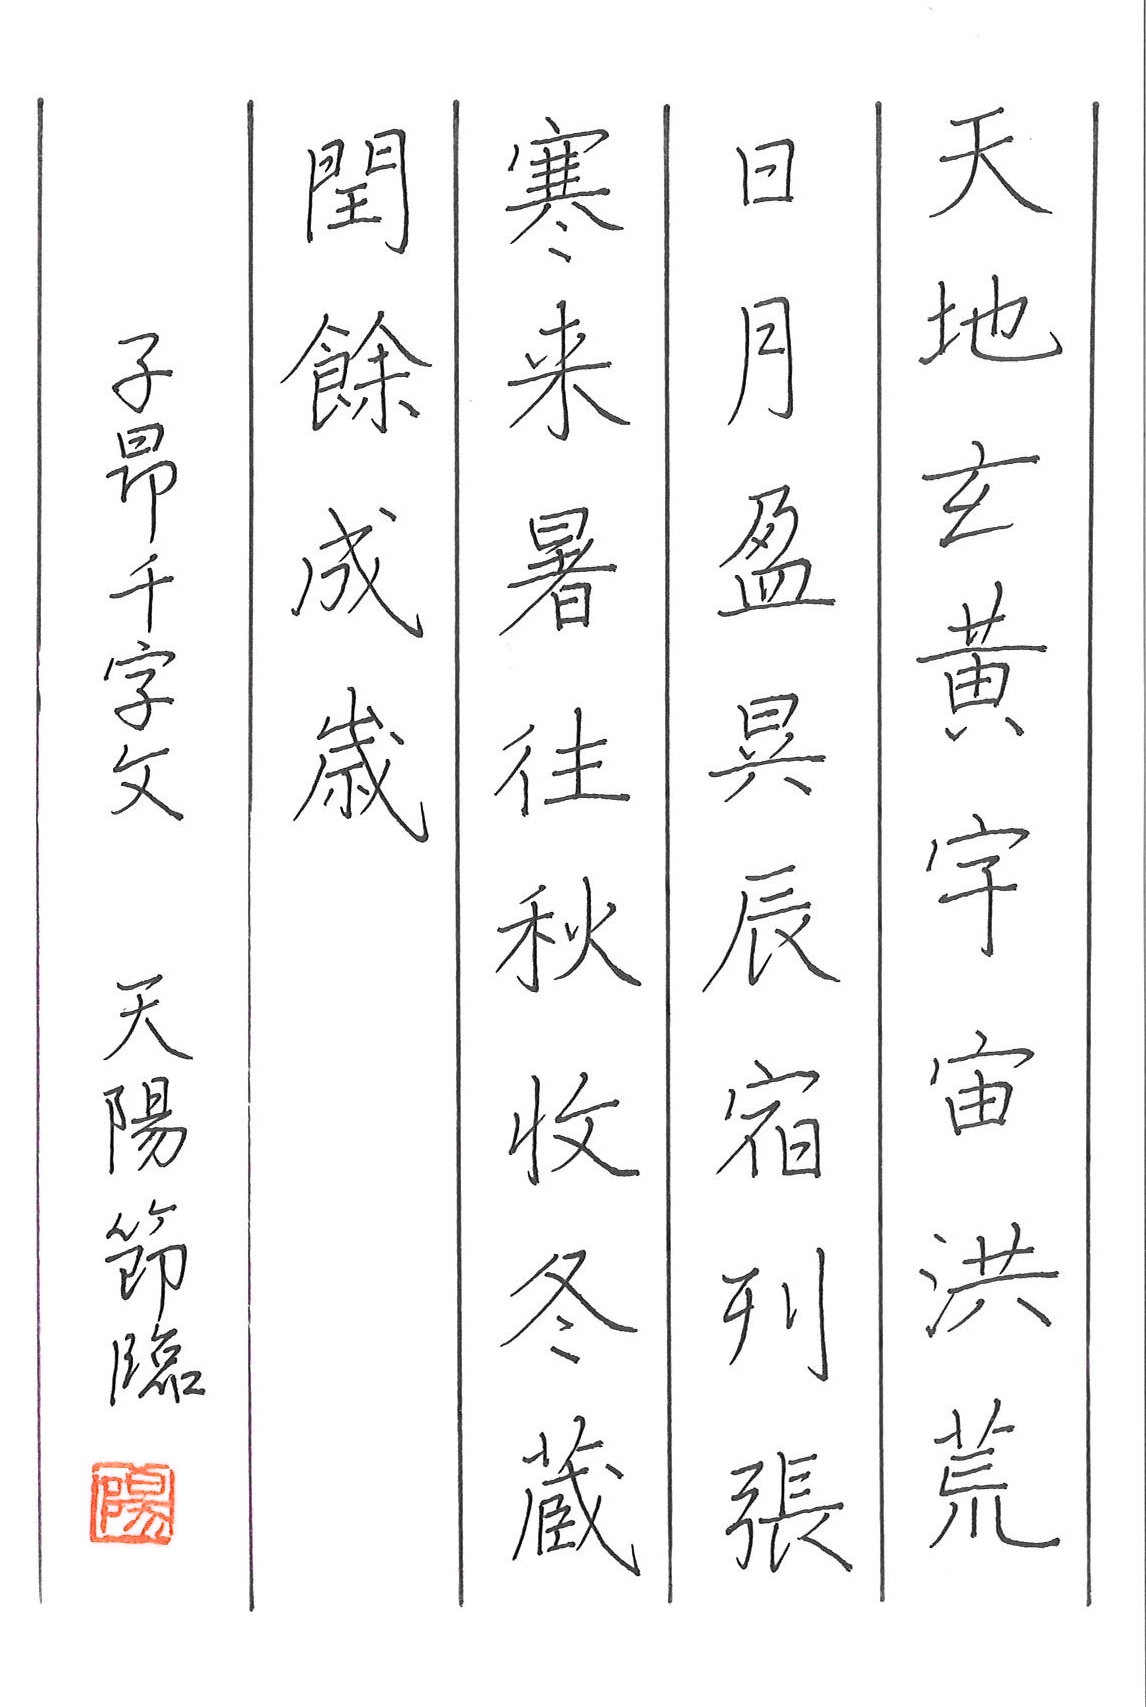 天地玄黄宇宙洪荒
日月盈昃辰宿列張
寒来暑往秋收冬蔵
閏餘成歳
子昂千字文 天陽節臨
陽